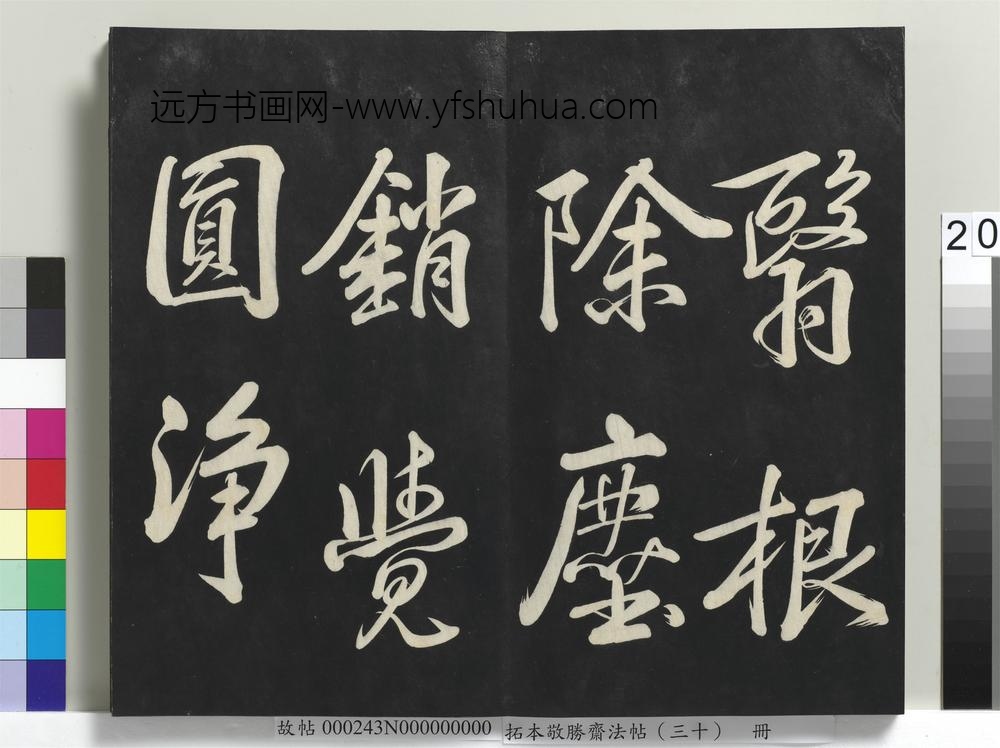 远方书画网-www.yfshuhua.com
翳根
除塵
銷覺
圓淨
20
故帖 000243N000000000 拓本敬勝齋法帖（三十） 冊